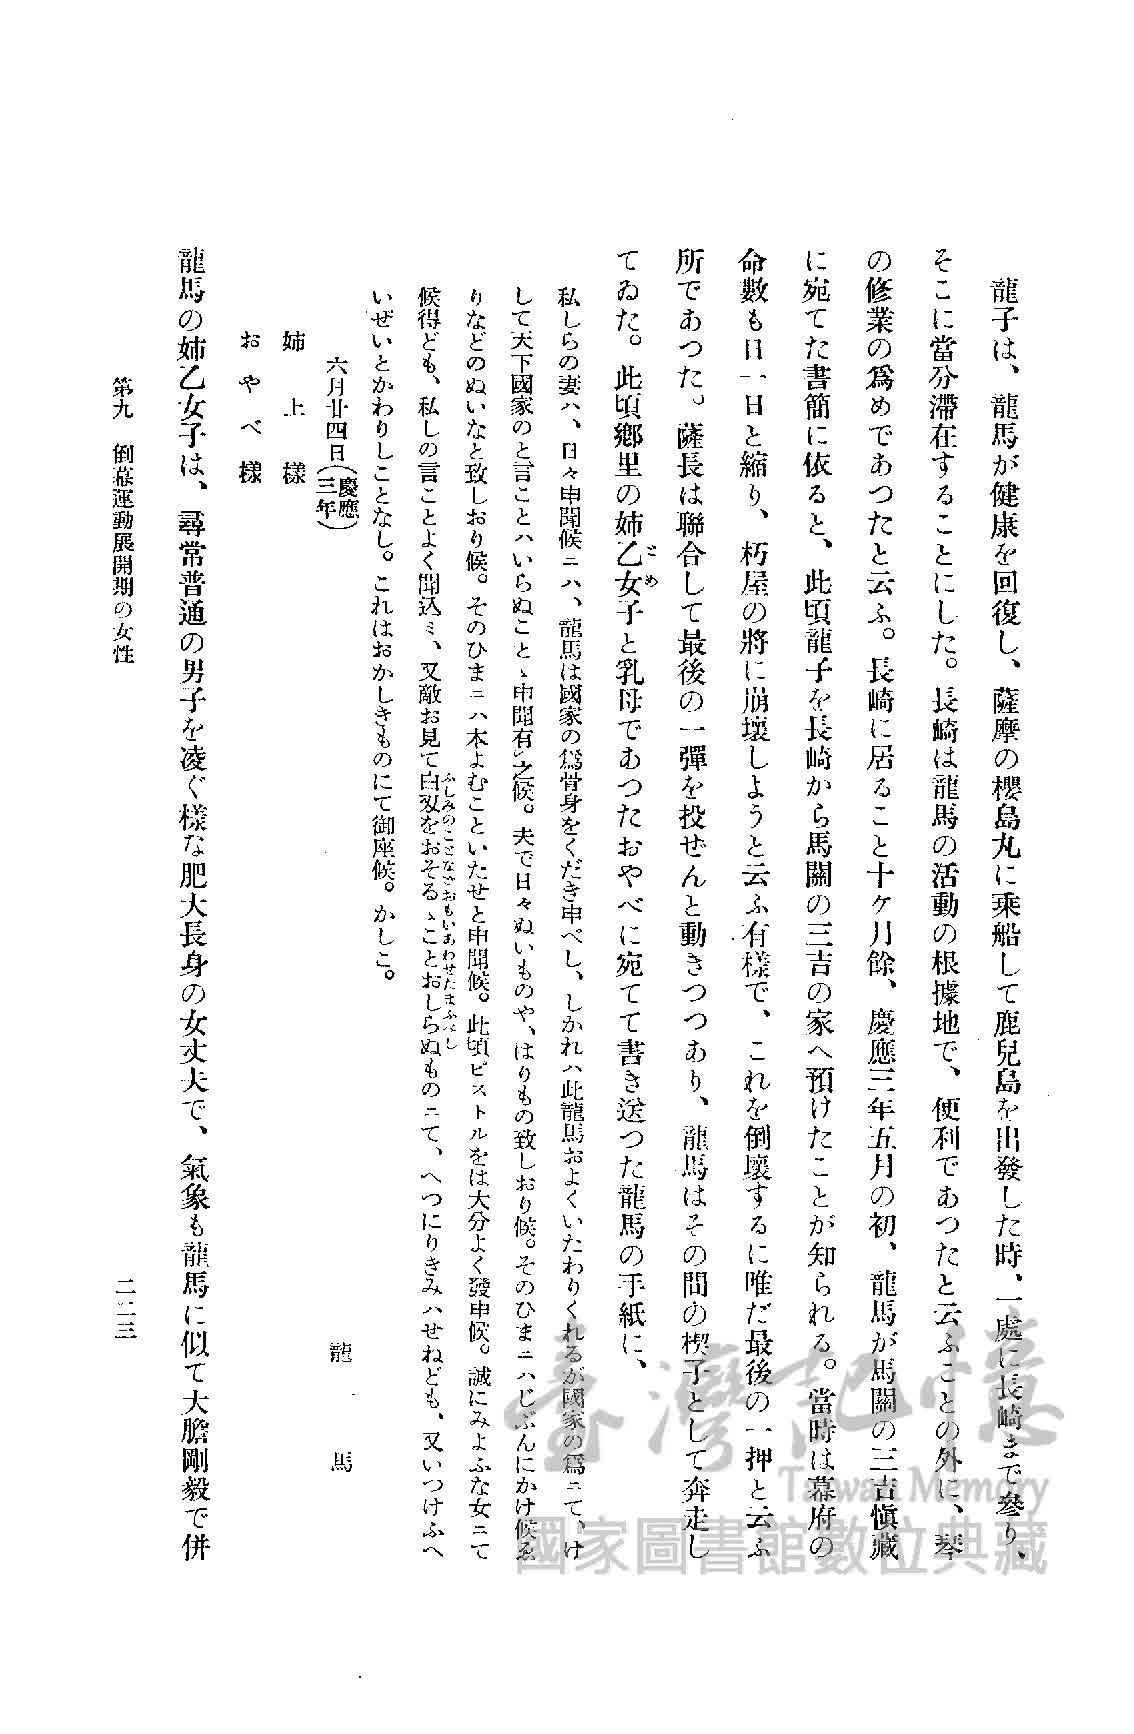 龍子は、龍馬が健康を回復し、薩摩の櫻島丸に乘船して鹿兒島を出發した時、一處に長崎まで參り、
そこに當分滯在することにした。長崎は龍馬の活動の根據地で、便利であつたと云ふことの外に、琴
の修業の爲めであつたと云ふ。長崎に居ること十ケ月餘、慶應三年五月の初、龍馬が馬關の三吉愼藏
に宛てた書簡に依ると、此頃龍子を長崎から馬關の三吉の家へ預けたことが知られる。當時は幕府の
命數も日一日と縮り、朽屋の將に崩壞しようと云ふ有樣で、これを倒壞するに唯だ最後の一押と云ふ
所であつた。薩長は聯合して最後の一彈を投ぜんと動きつつあり、龍馬はその間の楔子として奔走し
てゐた。此頃鄕里の姉乙女子と乳母であつたおやべに宛てて書き送つた龍馬の手紙に、
とめ
私しらの妻ハ、日々申聞候ニハ、龍馬は國家の爲骨身をくだき申べし、しかれハ此龍馬およくいたわりくれるが國家の爲ニて、け
して天下國家のと言ことハいらぬことゝ申聞有㆑之候。夫で日々ぬいものや、はりもの致しおり候。そのひまニハじぶんにかけ候ゑ
りなどのぬいなと致しおり候。そのひまニハ本よむこといたせと申聞候。此頃ピストルをは大分よく發申候。誠にみよふな女ニて
ふしみのことなどおもいあわせたまふべし
候得ども、私しの言ことよく聞込ミ、又敵お見て白刄をおそるゝことおしらぬものニて、へつにりきみハせねども、又いつけふへ
いぜいとかわりしことなし。これはおかしきものにて御座候。かしこ。
六月廿四日(慶應三年)
龍馬
姉上樣
おやべ樣
龍馬の姉乙女子は、尋常普通の男子を凌ぐ樣な肥大長身の女丈夫で、氣象も龍馬に似て大膽剛毅で併
第九 倒幕運動展開期の女性
二二三
臺灣記憶
Taiwan Memory
國家圖書館數位典藏